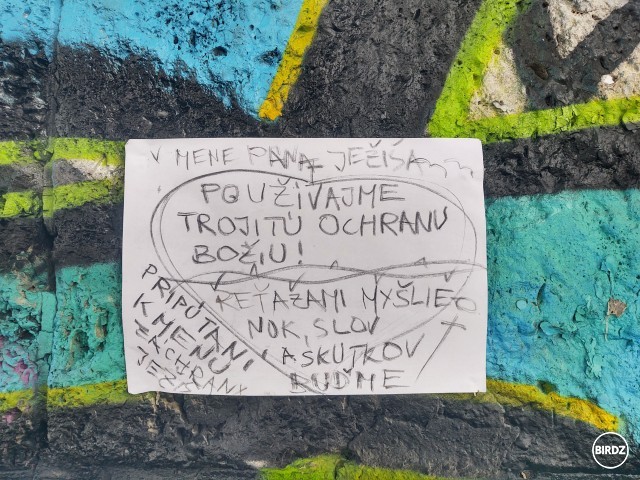 V MENE PANA JEŽIŠA
POUŽÍVAJME
TROJITÚ OCHRANU
BOŽIU!
REŤAZAMI MYŠLIE
NOK, SLOV
A SKUTKOV
BUĎME
PRIPÚTANÍ
K MENU
ZÁCHRANY
JEŽIŠ
BIRDZ